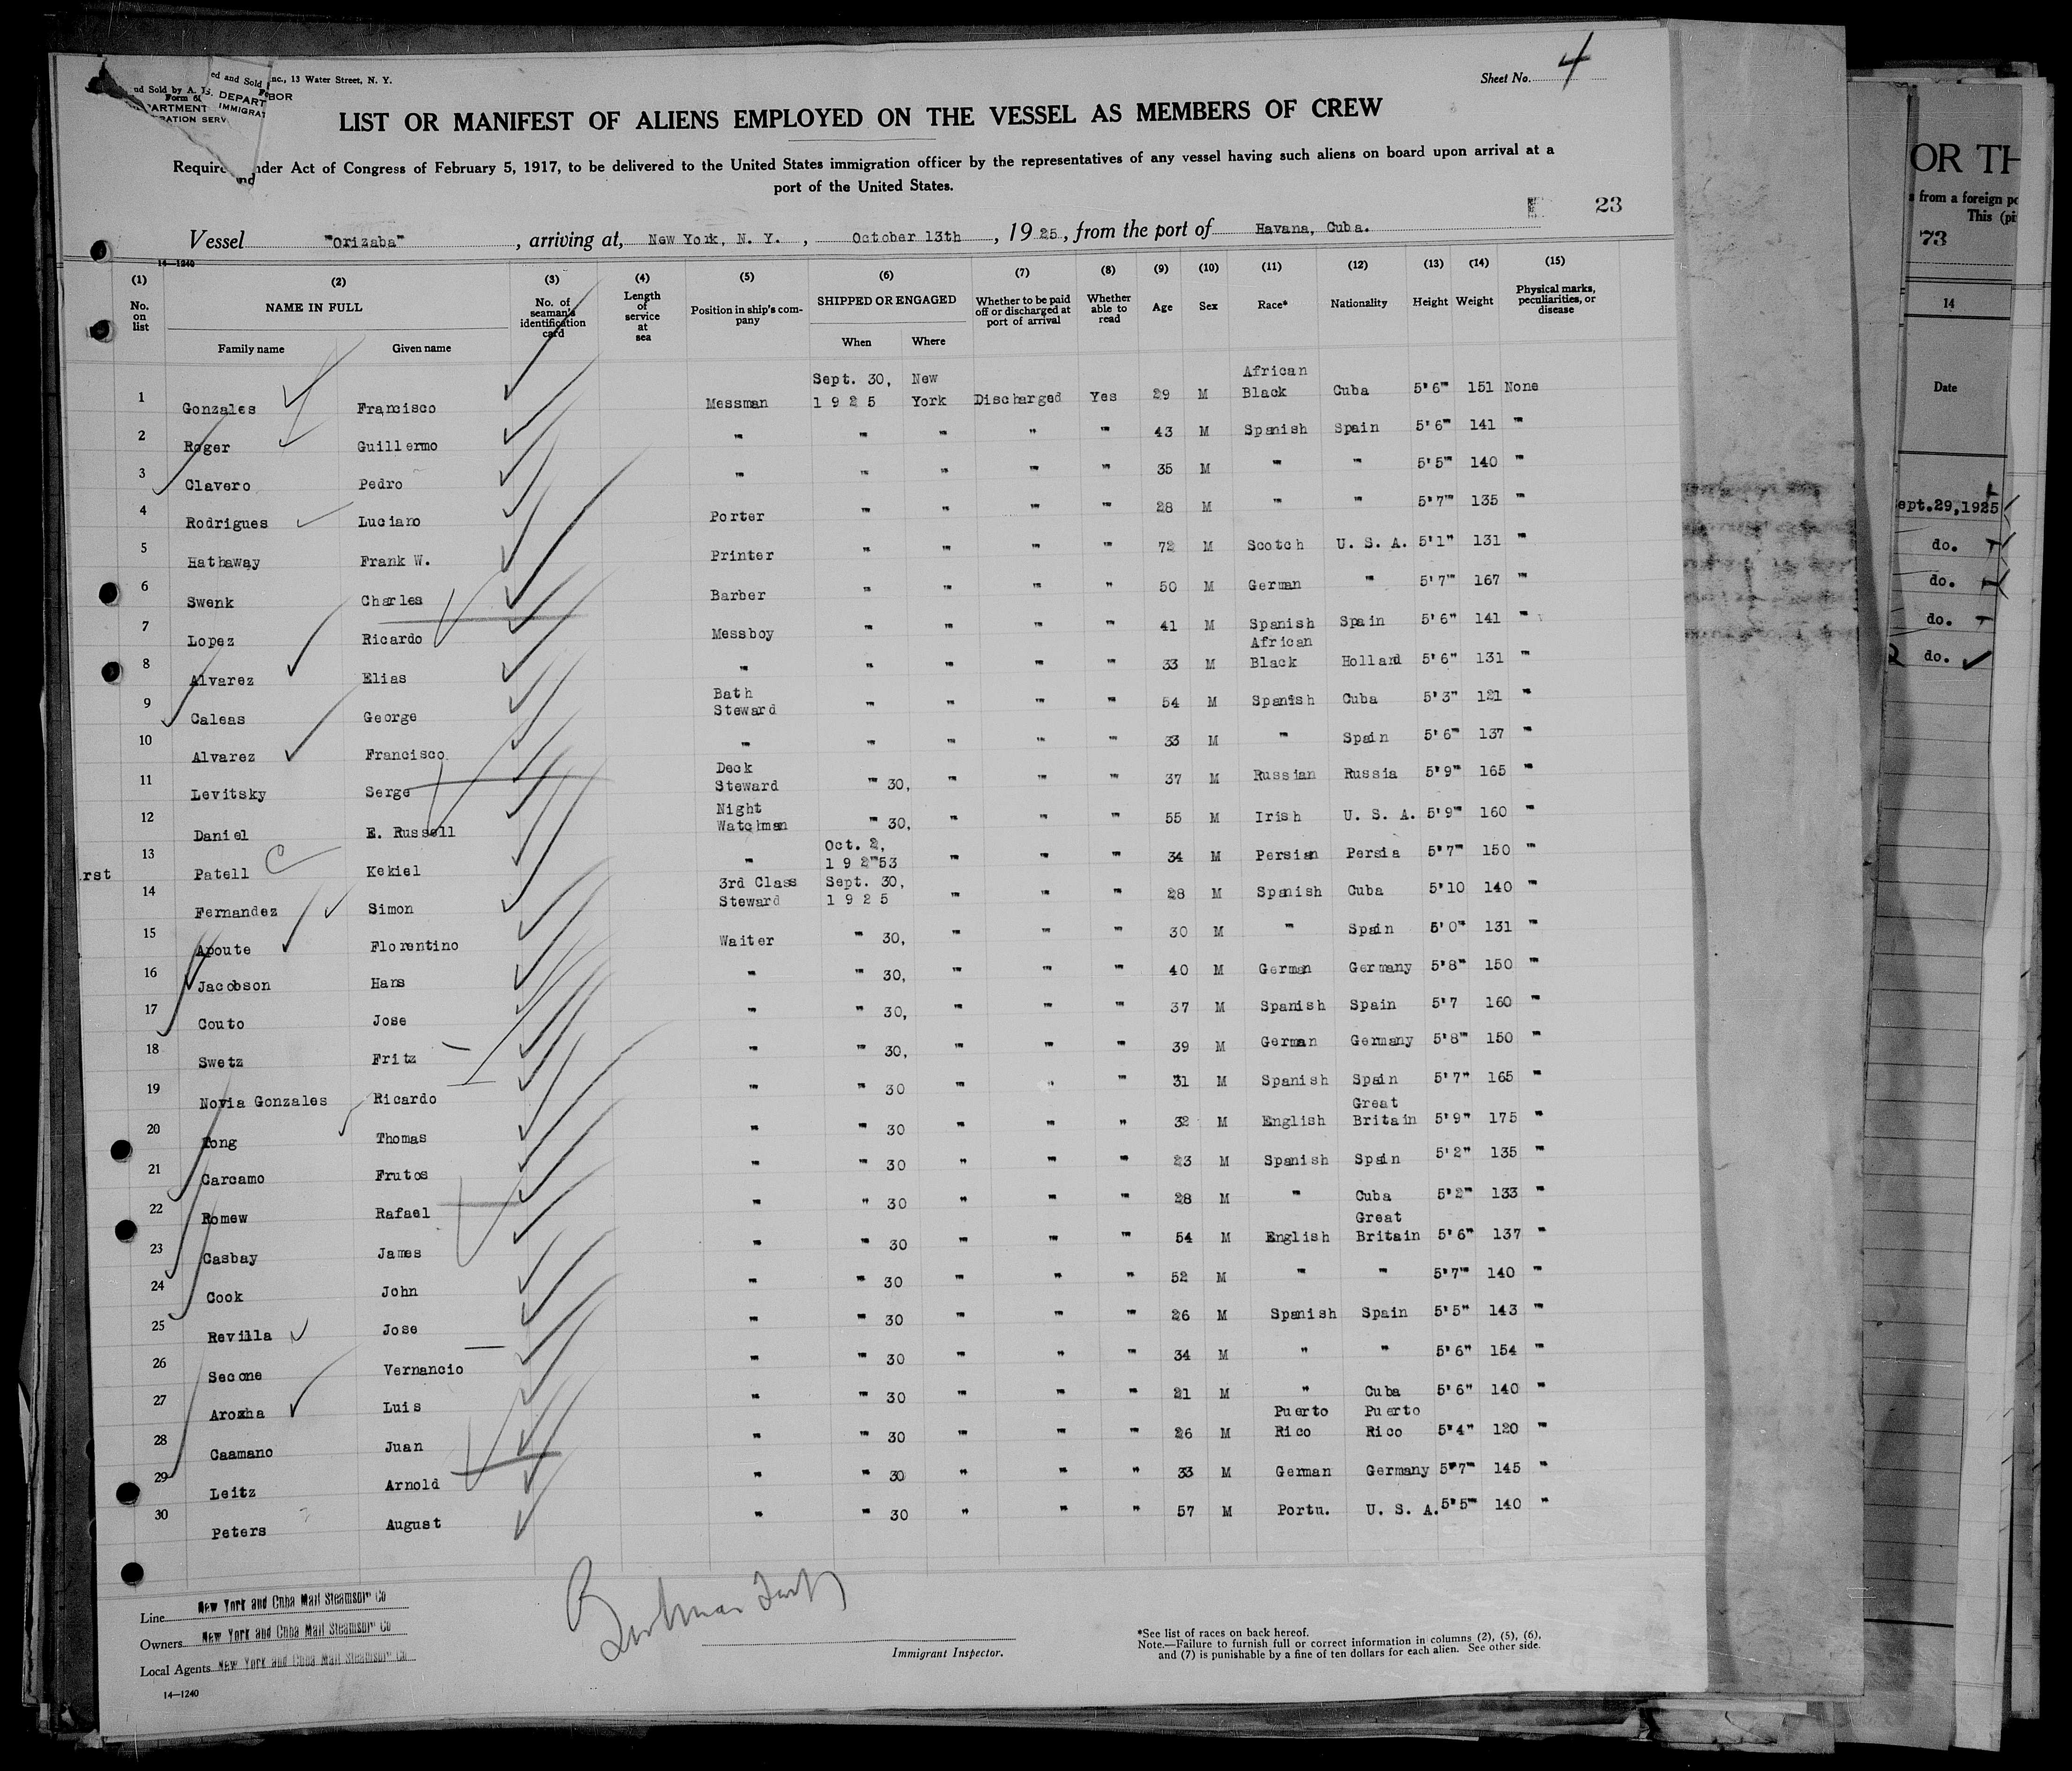 Sheet No. 4
nd Sold by A.
ed and Sold
nc., 13 Water Street, N. Y.
Form 6
DEPART
BOR
ARTMENT
IMMIGRAT
RATION SERV
LIST OR MANIFEST OF ALIENS EMPLOYED ON THE VESSEL AS MEMBERS OF CREW
Require nder Act of Congress of February 5, 1917, to be delivered to the United States immigration officer by the representatives of any vessel having such aliens on board upon arrival at a
port of the United States.
23
Vessel "Orizaba", arriving at, New York, N. Y., October 13th, 1925, from the port of Havana, Cuba.
14—1240
(1) (2) (3) (4) (5) (6) (7) (8) (9) (10) (11) (12) (13) (14) (15)
No. on list NAME IN FULL Family name Given name No. of seaman's identification card Length of service at sea Position in ship's company SHIPPED OR ENGAGED When Where Whether to be paid off or discharged at port of arrival Whether able to read Age Sex Race* Nationality Height Weight Physical marks, peculiarities, or disease
1 Gonzales Francisco Messman Sept. 30, 1925 New York Discharged Yes 29 M African Black Cuba 5'6" 151 None
2 Roger Guillermo " " " " " 43 M Spanish Spain 5'6" 141 "
3 Clavero Pedro " " " " " 35 M " " 5'5" 140 "
4 Rodrigues Luciano Porter " " " " 28 M " " 5'7" 135 "
5 Hathaway Frank W. Printer " " " " 72 M Scotch U. S. A. 5'1" 131 "
6 Swenk Charles Barber " " " " 50 M German " 5'7" 167 "
7 Lopez Ricardo Messboy " " " " 41 M Spanish Spain 5'6" 141 "
8 Alvarez Elias " " " " " 33 M African Black Holland 5'6" 131 "
9 Caleas George Bath Steward " " " " 54 M Spanish Cuba 5'3" 121 "
10 Alvarez Francisco " " " " " 33 M " Spain 5'6" 137 "
11 Levitsky Serge Deck Steward " 30, " " " 37 M Russian Russia 5'9" 165 "
12 Daniel E. Russell Night Watchman " 30, " " " 55 M Irish U. S. A. 5'9" 160 "
rst 13 Patell C Kekiel " Oct. 2, 192"53 " " " 34 M Persian Persia 5'7" 150 "
14 Fernandez Simon 3rd Class Steward Sept. 30, 1925 " " " 28 M Spanish Cuba 5'10 140 "
15 Apoute Florentino Waiter " 30, " " " 30 M " Spain 5'0" 131 "
16 Jacobson Hans " " 30, " " " 40 M German Germany 5'8" 150 "
17 Couto Jose " " 30, " " " 37 M Spanish Spain 5'7 160 "
18 Swetz Fritz " " 30, " " " 39 M German Germany 5'8" 150 "
19 Novia Gonzales Ricardo " " 30 " " " 31 M Spanish Spain 5'7" 165 "
20 Tong Thomas " " 30 " " " 32 M English Great Britain 5'9" 175 "
21 Carcamo Frutos " " 30 " " " 23 M Spanish Spain 5'2" 135 "
22 Romew Rafael " " 30 " " " 28 M " Cuba 5'2" 133 "
23 Casbay James " " 30 " " " 54 M English Great Britain 5'6" 137 "
24 Cook John " " 30 " " " 52 M " " 5'7" 140 "
25 Revilla Jose " " 30 " " " 26 M Spanish Spain 5'5" 143 "
26 Secone Vernancio " " 30 " " " 34 M " " 5'6" 154 "
27 Luis " " 30 " " " 21 M " Cuba 5'6" 140 "
28 Caamano Juan " " 30 " " " 26 M Puerto Rico Puerto Rico 5'4" 120 "
29 Leitz Arnold " " 30 " " " 33 M German Germany 5'7" 145 "
30 Peters August " " 30 " " " 57 M Portu. U. S. A. 5'5" 140 "
Line New York and Cuba Mail Steamship Co
Owners New York and Cuba Mail Steamship Co
Local Agents New York and Cuba Mail Steamship Co
14—1240
Immigrant Inspector.
*See list of races on back hereof.
Note.—Failure to furnish full or correct information in columns (2), (5), (6),
and (7) is punishable by a fine of ten dollars for each alien. See other side.
OR TH
s from a foreign po
This (pi
73
14
Date
ept.29,1925
do.
do.
do.
do.